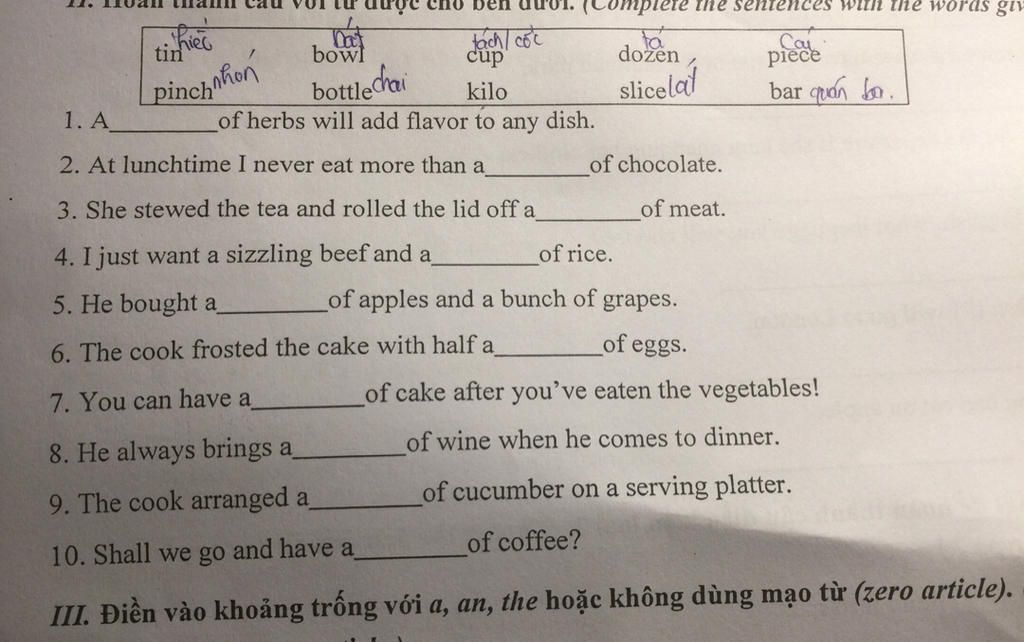 II. Hoàn thành câu với từ được cho bên dưới. (Complete the sentences with the words giv
thiếc bát tách/cốc tá Cái
tin bowl cup dozen piece
pinch nhón bottle chai kilo slice lát bar quán ba.
1. A________of herbs will add flavor to any dish.
2. At lunchtime I never eat more than a________of chocolate.
3. She stewed the tea and rolled the lid off a________of meat.
4. I just want a sizzling beef and a________of rice.
5. He bought a________of apples and a bunch of grapes.
6. The cook frosted the cake with half a________of eggs.
7. You can have a________of cake after you've eaten the vegetables!
8. He always brings a________of wine when he comes to dinner.
9. The cook arranged a________of cucumber on a serving platter.
10. Shall we go and have a________of coffee?
III. Điền vào khoảng trống với a, an, the hoặc không dùng mạo từ (zero article).